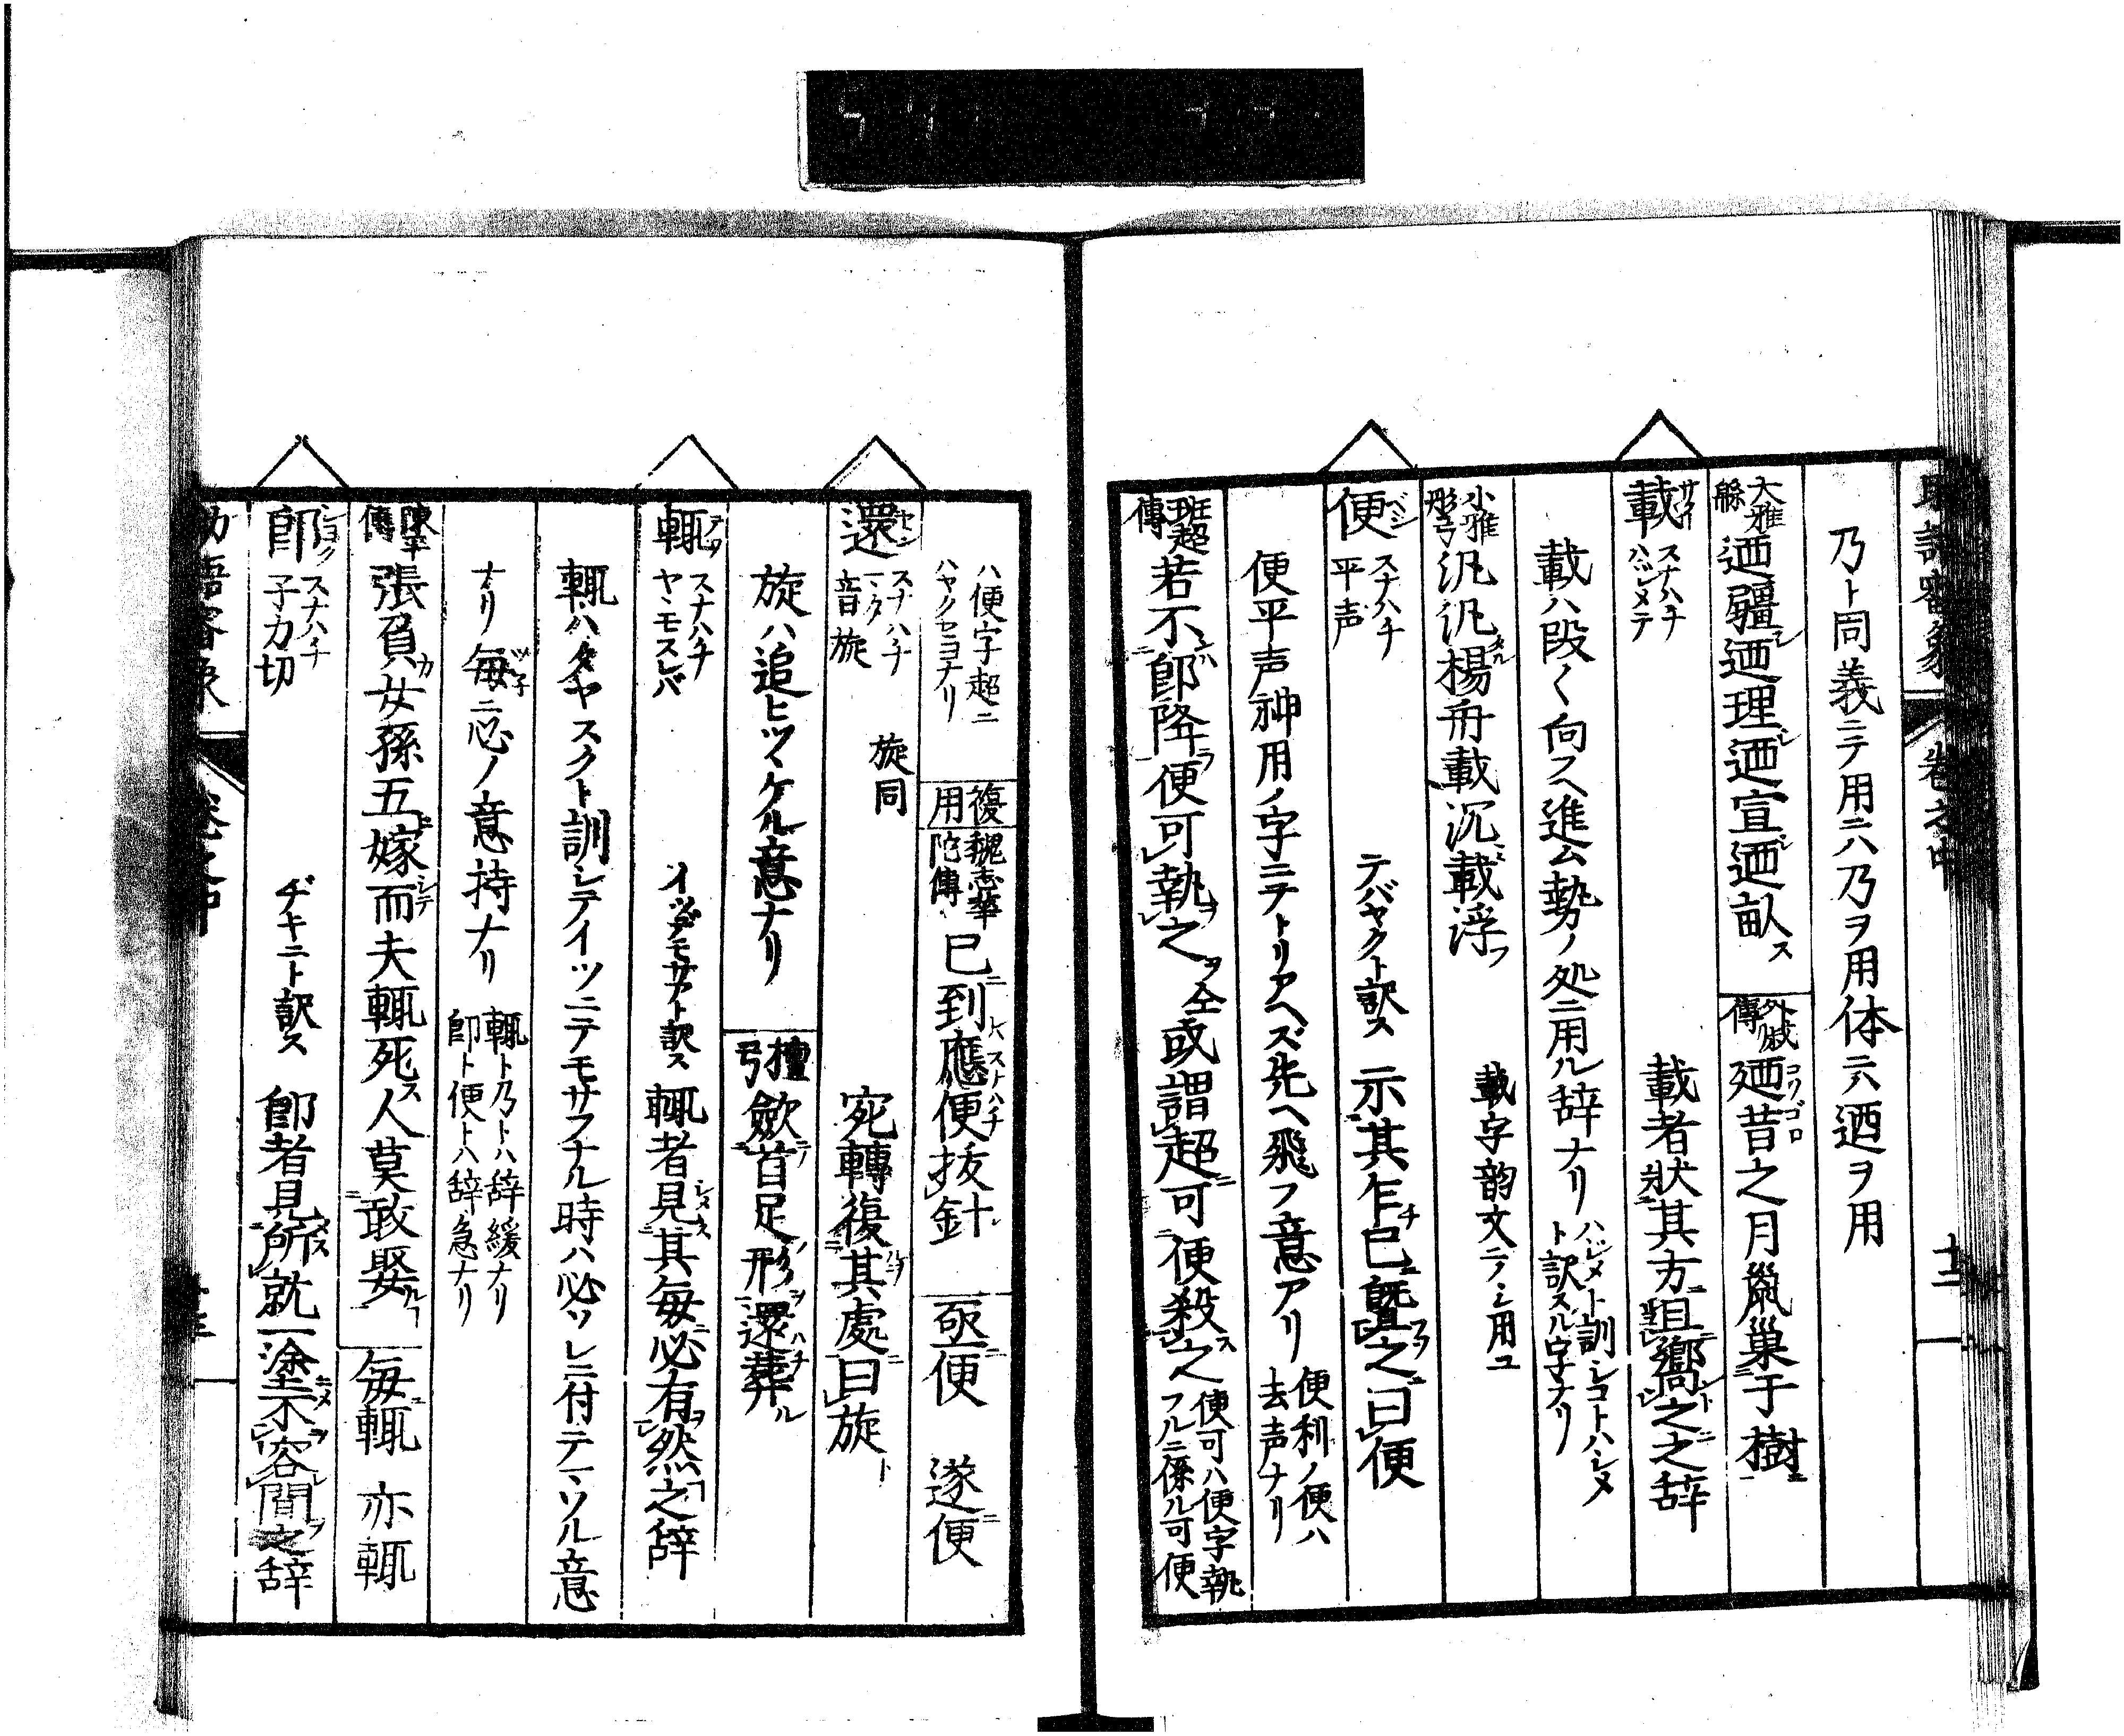 乃ト同義ニテ用ニハ乃ヲ用体ニハ迺ヲ用
大雅緜 迺疆迺理迺宣迺畝ス 外戚傳 廼昔之月鼠巣于樹
載 サイ スナハチ ハジメテ 載者状其方且嚮之之辞
載ハ段〱向フヘ進ム勢ノ処ニ用ル辞ナリ ハジメト訓シコトハジメト訳スル字ナリ
小雅彤弓 汎汎楊舟載沉載浮フ 載字韵文ニノミ用ユ
便 ベン スナハチ 平声 テバヤクト訳ス 示其乍已曁之曰便
便平声神用ノ字ニテトリアヘズ先ヘ飛フ意アリ 便利ノ便ハ去声ナリ
班超傳 若不即降便可執之 仝 或謂超可便殺之 便可ハ便字執フルニ係ル可便
ハ便字超ニハヤクセヨナリ 復用 魏志華陀傳 已到應便抜針 亟便 遂便
還 セン スナハチ 音旋 旋同 宛轉復其處曰旋
旋ハ追ヒツヽケル意ナリ 檀弓 歛首足形還葬ル
輒 スナハチ ヤヽモスレバ イツデモサアト訳ス 輒者見其毎必有然之辞
輒ハタヤスクト訓シテイツニテモサフナル時ハ必ソレニ付テマソル意
ナリ毎ニ忍ノ意持ナリ 輒ト乃トハ辞緩ナリ即ト便トハ辞急ナリ
陳平傳 張負女孫五嫁而夫輒死人莫敢娶 毎輒 亦輒
即 シヨク スナハチ 子力切 ヂキニト訳ス 即者見所就一塗不容間之辞